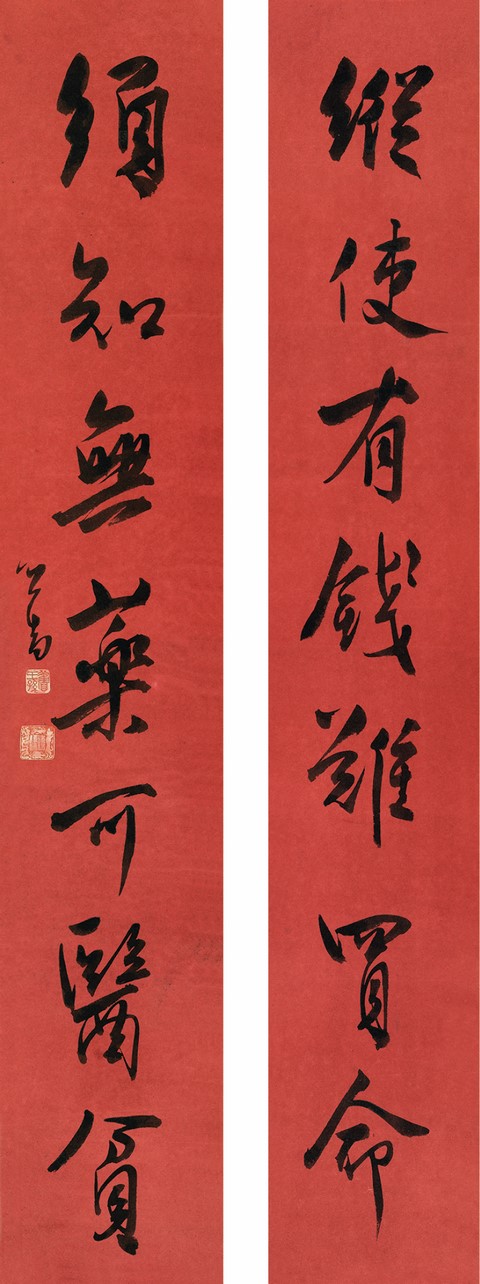 縱使有錢難買命
須知無藥可醫貧
心畬